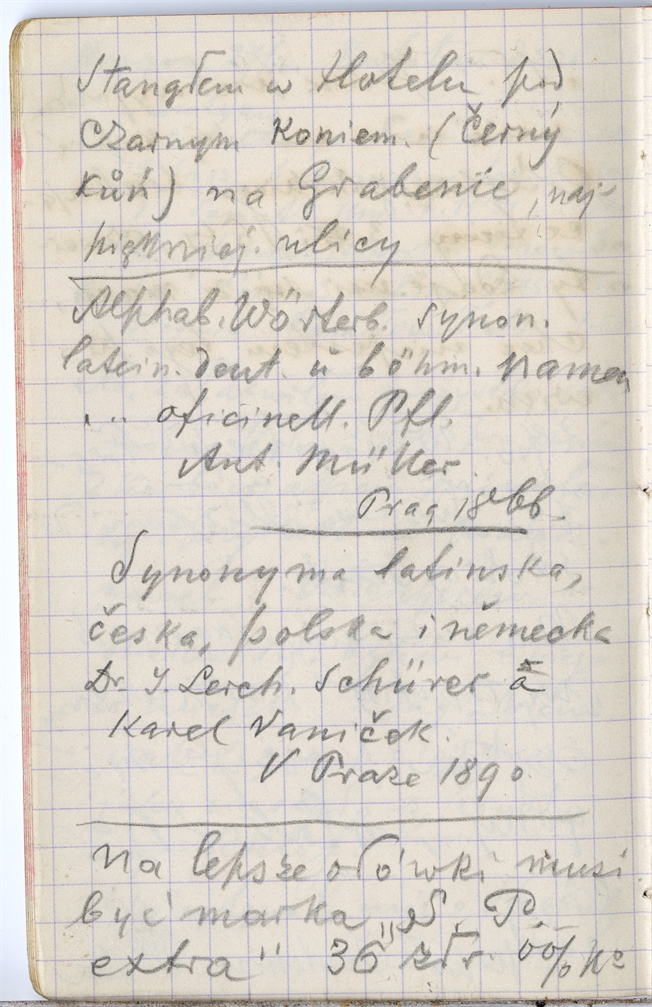 Stangłem w Hotelu pod
Czarnym Koniem. (Černý
Kůń) na Grabenie, naj-
piękniej. ulicy
Alphab. Wörterb. synon.
latein. deut. u böhm. Namen
... oficinell. Pfl.
Ant. Müller.
Prag 1866.
Synonyma latinska,
česka, polska i německa
Dr. J. Lerch. Schürer a
Karel Vaniček.
V Praze 1890
Na lepsze ołówki musi
być marka „S. P.
extra" 36 złr.